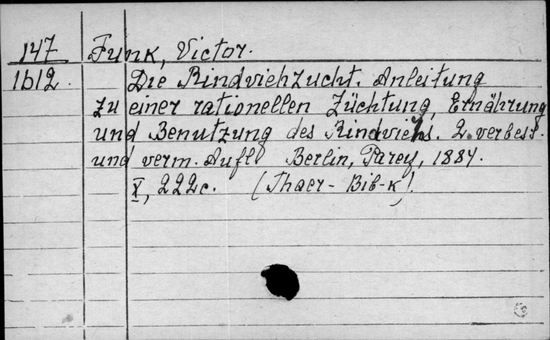 147 Funk, Victor.
1612. Die Rindviehzucht. Anleitung
zu einer rationellen Züchtung, Ernährung
und Benutzung des Rindviehs. 2. verbest.
und verm. Aufl. Berlin, Parey, 1884.
X, 222c. (Thaer-Bib-k)!